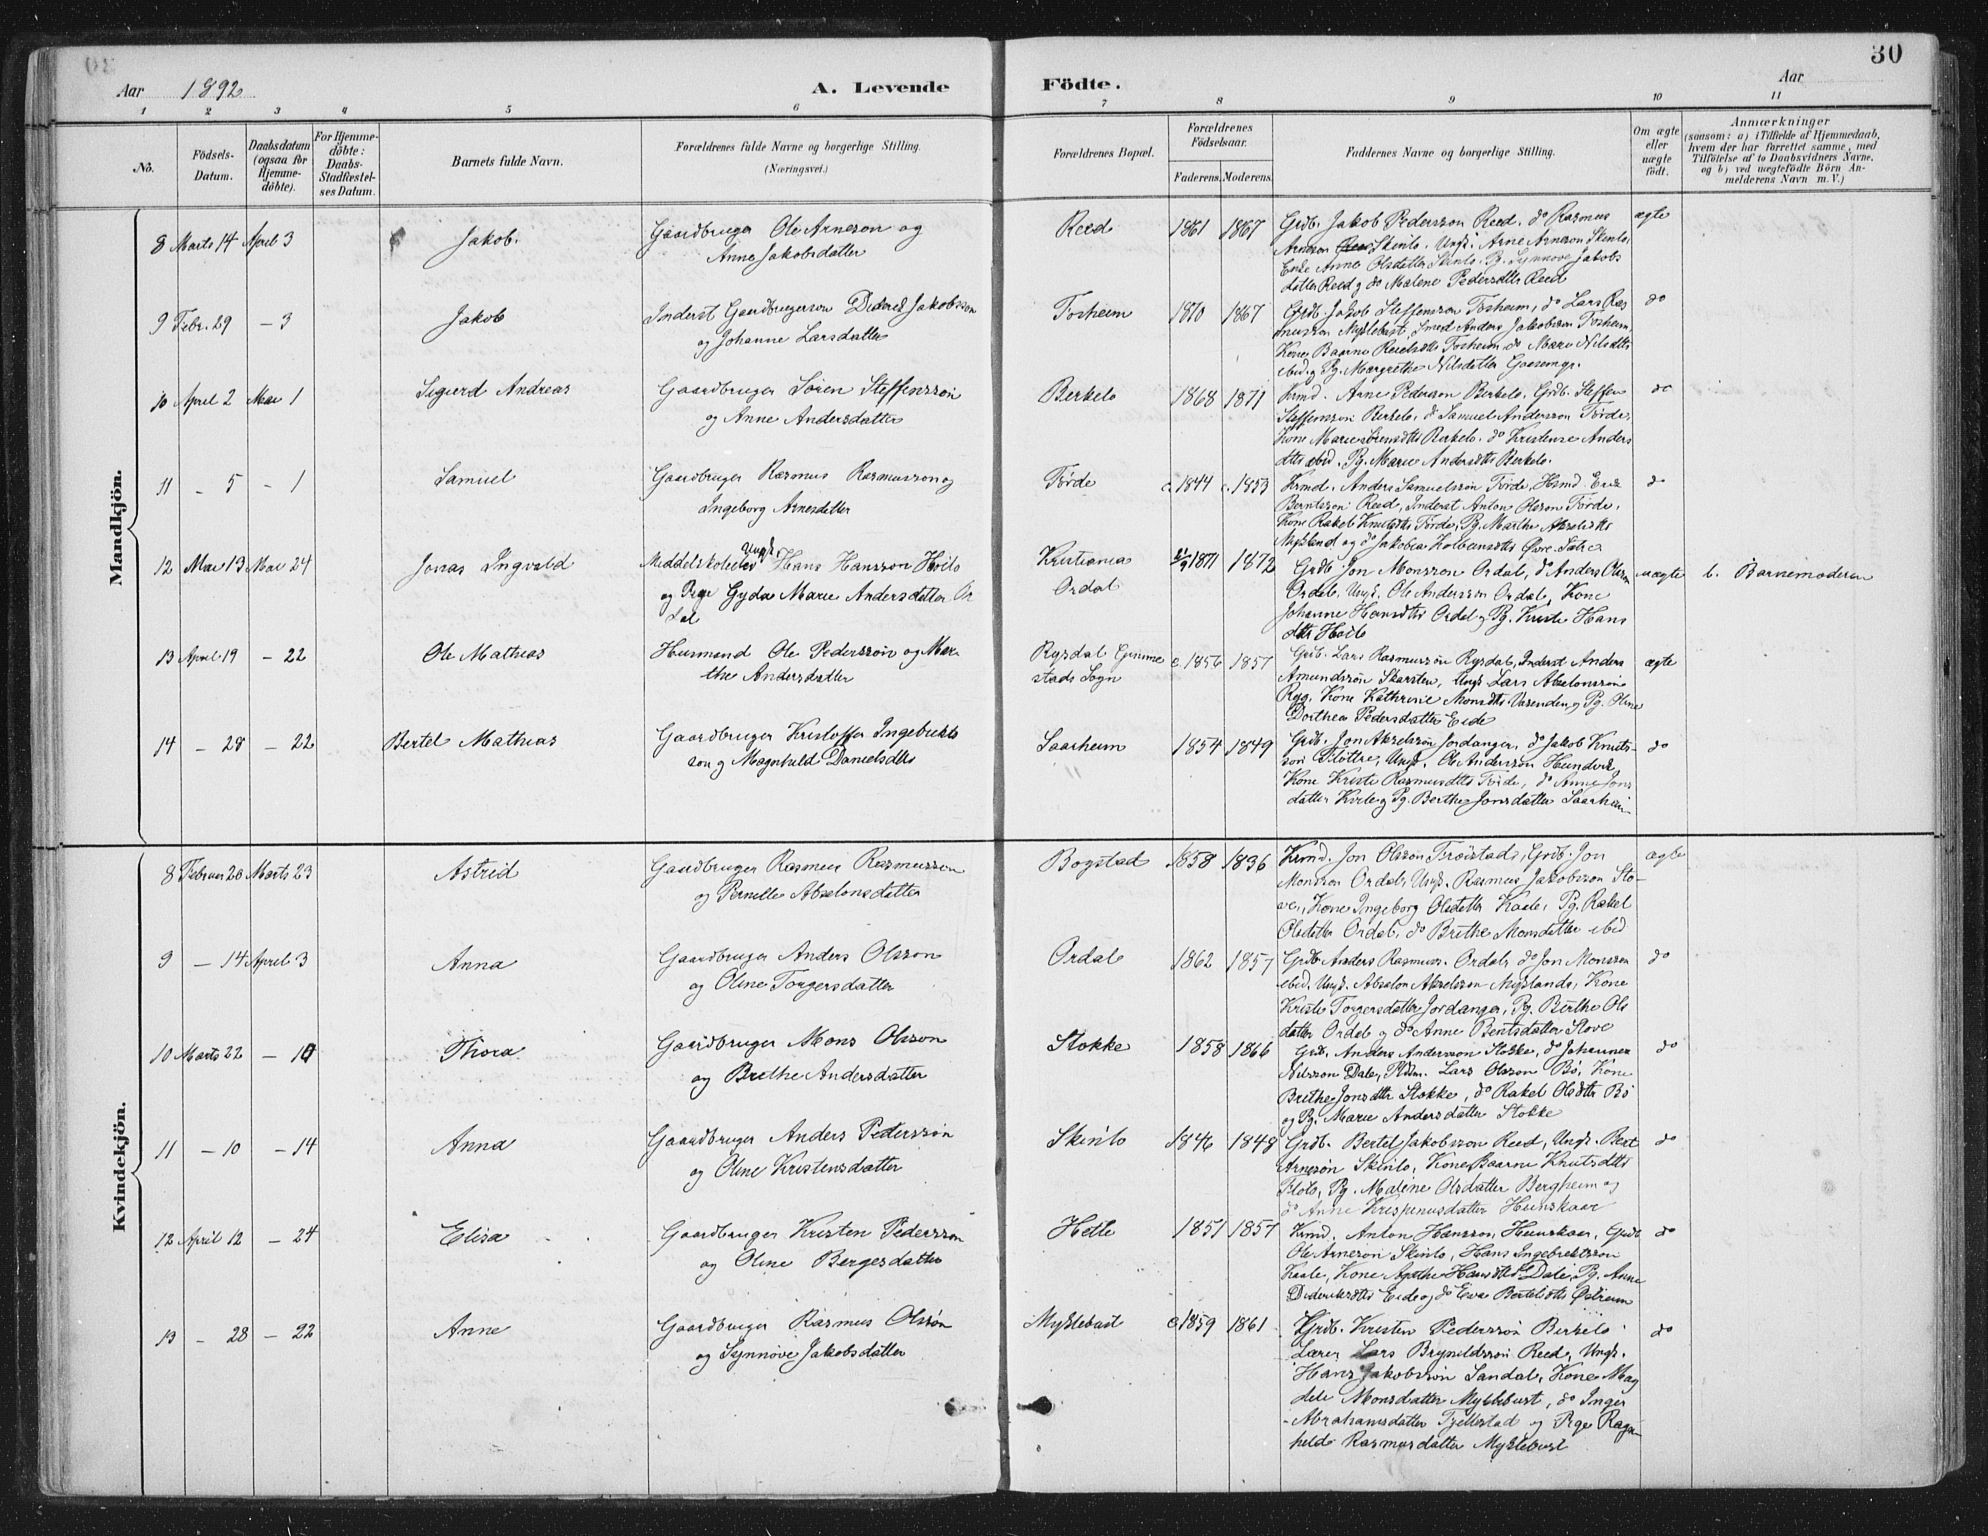 30
Aar 1892.
A. Levende Födte.
Aar
1 2 3 4 5 6 7 8 9 10 11
No.
Födsels-Datum.
Daabsdatum (ogsaa for Hjemmedöbte).
For Hjemmedöbte: Daabs-Stadfæstelses Datum.
Barnets fulde Navn.
Forældrenes fulde Navne og borgerlige Stilling.
(Næringsvei.)
Forældrenes Bopæl.
Forældrenes Födselsaar.
Faderens. Moderens.
Faddernes Navne og borgerlige Stilling.
Om ægte eller uægte födt.
Anmærkninger
(saasom: a) i Tilfælde af Hjemmedaab, hvem der har forrettet samme, med Tilföielse af to Daabsvidners Navne, og b) ved uægtefödte Börn Anmelderens Navn m. V.)
Mandkjön.
8 Marts 14 April 3 Jakob. Gaardbruger Ole Arneson og
Anne Jakobsdatter
Reed 1861 1867
Grdb. Jakob Pederssøn Reed, do Rasmus
Arneson Skinlo, Ungk. Arne Arneson Skinlo,
Enke Anne Olsdatter Skinlo. Pg. Synnøve Jakobs
datter Reed og do Malene Pedersdtr Reed
ægte
9 Febr. 29 – 3 Jakob Inderst Gaardbrugersøn Diderik Jakobsson
og Johanne Larsdatter
Tosheim 1870 1867
Grdb. Jakob Steffensson Tosheim, do Lars Ras
musson Myklebust, Smed Anders Jakobsson Tosheim,
Kone Baarne Reielsdtr Tosheim do Mari Nilsdtr
ibid. og Pg. Margrethe Nilsdatter
do
10 April 2 Mai 1 Sigurd Andreas Gaardbruger Søren Steffenssøn
og Anne Andersdatter
Berkelo 1868 1871
Krmd. Arne Pederssøn Berkelo, Grdb. Steffen
Steffenssøn Berkelo, do Samuel Anderssøn Førde,
Kone Marie Sørensdtr Berkelo. do Kristense Anders
dtr ibid. Pg. Marie Andersdtr Berkelo.
do
11 – 5 – 1 Samuel Gaardbruger Rasmus Rasmusson og
Ingeborg Arnesdatter
Førde c. 1844 c. 1853
Krmd. Anders Samuelssøn Førde, Hsmd Erik
Berntsson Reed, Inderst Anton Olsson Førde,
Kone Rakel Knutsdtr Førde, Pg. Marthe Akselsdtr
Mykland og do Jakobea Kolbeinsdtr Øvre Sætre
do
12 Mai 13 Mai 24 Jonas Ingvald Middelskoleelev Ungk. Hans Hanssøn Hoilo
og Pige Gyda Marie Andersdatter Or
dal
Kristiania
Ordal
21/9 1871 1872
Grdb. Jon Monsson Ordal, do Anders Olsson
Ordal, Ungk. Ole Andersson Ordal, Kone
Johanne Hansdtr Ordal og Pg. Kristi Hans
dtr Hoilo
uægte b. Barnemoderen
13 April 19 – 22 Ole Mathias Husmand Ole Pederssøn og Mar
the Andersdatter
Rygdal Gimme
stads Sogn
c. 1856 1857
Grdb. Lars Rasmussøn Rygdal, Inderst Anders
Amundssøn Skarsten, Ungk Lars Abselonssøn
Ryg, Kone Kathrine Monsdtr Varenden og Pg. Oline
Dorthea Pedersdatter Eide
ægte
14 – 28 – 22 Bertel Mathias Gaardbruger Kristoffer Ingebrikts
son og Magnhild Danielsdtr
Saarheim 1854 1849
Grdb. Jon Akselssøn Jordanger, do Jakob Knuts-
son Fløttre, Ungk. Ole Anderssøn Hundvik,
Kone Kristi Rasmusdtr Førde, do Anne Jons
datter Kvile og Pg. Berthe Jonsdatter Saarheim
do
Kvindekjön.
8 Februar 20 Marts 23 Astrid Gaardbruger Rasmus Rasmussøn
og Pernille Abselonsdatter
Bogstad 1858 1836
Krmd. Jon Olsson Frøistad, Grdb. Jon
Monsson Ordal, Ungk. Rasmus Jakobsson Sto
ve, Kone Ingeborg Olsdatter Kaale, Pg. Rakel
Olsdatter Ordal, do Brithe Monsdatter ibid
ægte
9 – 14 April 3 Anna Gaardbruger Anders Olsson
og Oline Torgersdatter
Ordal 1862 1857
Grdb. Anders Rasmuss. Ordal, do Jon Monsson
ibid. Ungk. Absalon Akselsson Mykland, Kone
Kristi Torgersdatter Jordanger, Pg. Berthe Ols
datter Ordal og do Anne Bentsdatter Stove
do
10 Marts 22 – 10 Thora Gaardbruger Mons Olsson
og Brithe Andersdatter
Stokke 1858 1866
Grdb. Anders Andersson Stokke, do Johannes
Nilsson Dale, Lars Olsson Bø, Kone
Brithe Jonsdtr Stokke, do Rakel Olsdtr Bø
og Pg. Marie Andersdatter Stokke
do
11 – 10 – 14 Anna Gaardbruger Anders Pederssøn
og Oline Kristensdatter
Skinlo 1846 1848
Grdb. Bertel Jakobsson Reed, Ungk. Bert
Arnesøn Skinlo, Kone Baarne Knutsdtr
Flolo, Pg. Malene Olsdatter Bergheim og
do Anne Krispinusdatter Hunskaar
do
12 April 12 – 24 Elisa Gaardbruger Kristen Pederssøn
og Oline Bergesdatter
Hetle 1851 1857
Krmd. Anton Hansson Hunskaar, Grdb
Ole Arneson Skinlo, Hans Ingebriktssøn
Kaale, Kone Agathe Hansdtr Dale, Pg. Anne
Dideriksdtr Eide og do Eva Bertelsdtr Østrem
do
13 – 28 – 22 Anne Gaardbruger Rasmus Olssøn
og Synnøve Jakobsdatter
Myklebust c 1859 1861
Grdb. Kristen Pederssøn Birkelo
Lærer Lars Brynildssøn Reed, Ungk.
Hans Jakobssøn Sandal, Kone Mag
dele Monsdatter Myklebust, do Inger
Abrahamsdatter Tjellestad og Pige Ragn
hild Rasmusdatter Myklebust
do